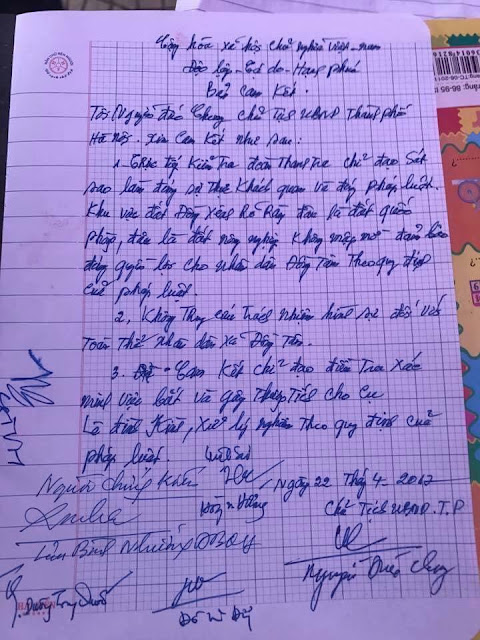 Cộng hòa xã hội chủ nghĩa Việt-nam
Độc lập-Tự do-Hạnh phúc
Bản Cam Kết.
Tôi Nguyễn Đức Chung chủ tịch UBND Thành phố
Hà nội. Xin Cam kết như sau:
1. Trực tiếp Kiểm Tra đoàn Thanh Tra chỉ đạo Sát
sao làm đúng sự thật Khách quan và đúng pháp luật.
Khu vực đất Đồng Sênh Rõ Ràng đâu là đất quốc
phòng, đâu là đất nông nghiệp không mập mờ đảm bảo
đúng quyền lợi cho nhân dân Đồng Tâm Theo quy định
của pháp luật.
2. Không Truy cứu Trách nhiệm hình sự đối với
Toàn Thể nhân dân xã Đồng Tâm.
3. Cam Kết chỉ đạo điều Tra Xác
minh việc bắt và gây Thương Tích cho Cụ
Lê Đình Kình, Xử lý nghiêm Theo quy định của
pháp luật.
Luật Sư
Người chứng kiến
Ngày 22 Thg 4-2017
Chủ Tịch UBND.T.P
Lưu Bình Nhưỡng ĐBQH
Nguyễn Đức Chung
Dương Trung Quốc